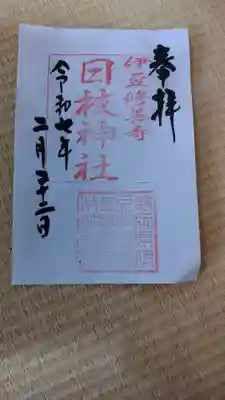 奉拝
伊豆修善寺
日枝神社
令和七年
二月二十二日